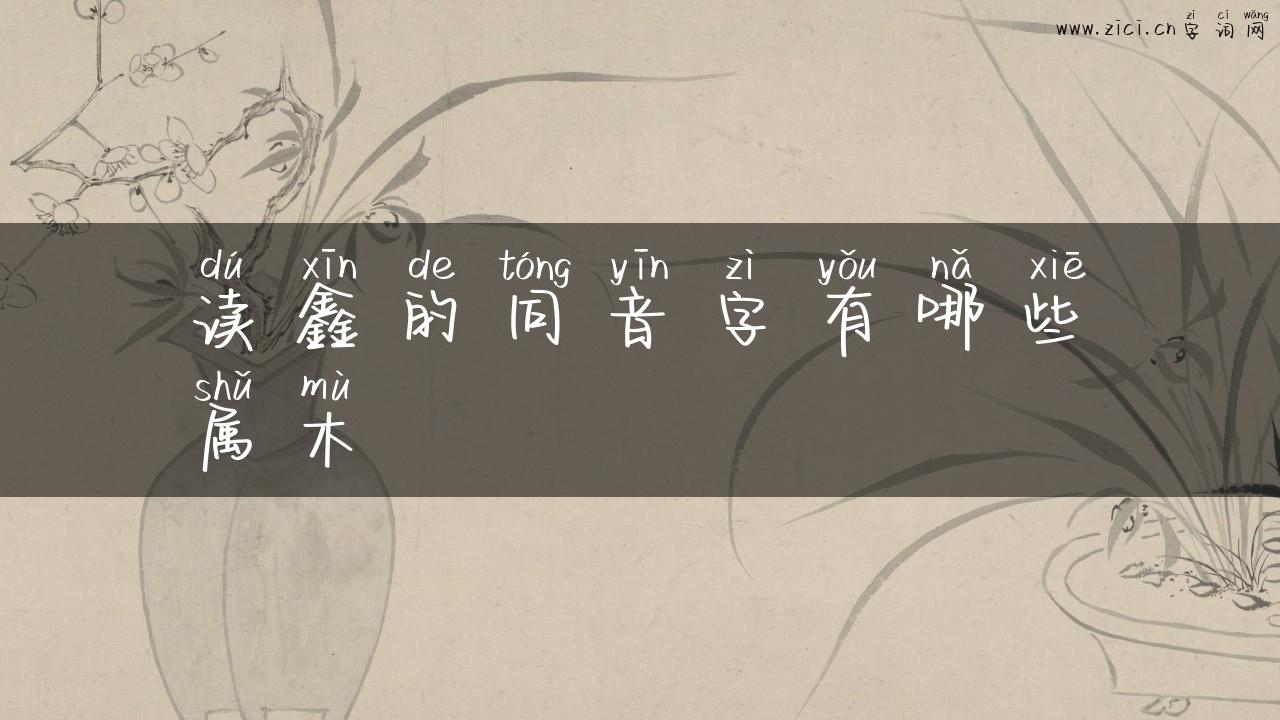 zì cí wǎng
www.zici.cn 字 词 网
dú xīn de tóng yīn zì yǒu nǎ xiē
读 鑫 的 同 音 字 有 哪 些
shǔ mù
属 木